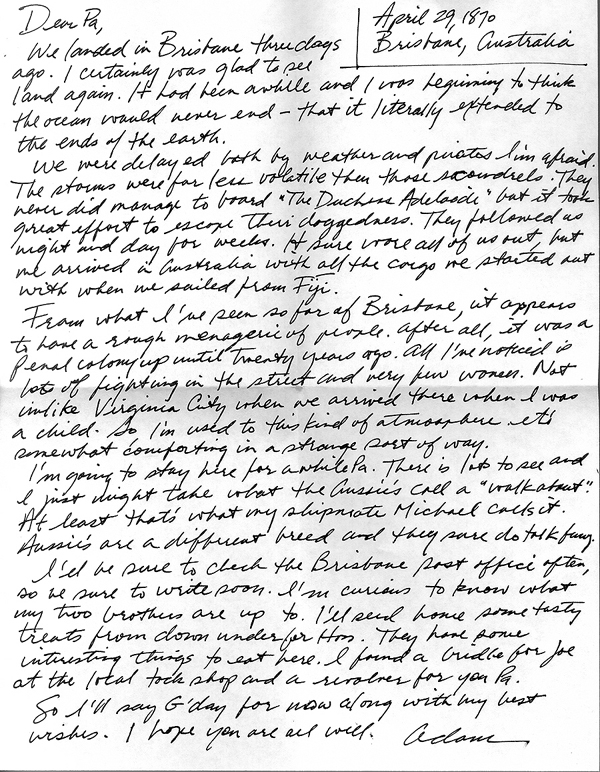 Dear Pa,
April 29, 1870
Brisbane, Australia
We landed in Brisbane three days
ago. I certainly was glad to see
land again. It had been awhile and I was beginning to think
the ocean would never end – that it literally extended to
the ends of the earth.
We were delayed both by weather and pirates I'm afraid.
The storms were far less volatile then those scoundrels. They
never did manage to board "The Duchess Adelaide" but it took
great effort to escape their doggedness. They followed us
night and day for weeks. It sure wore all of us out, but
we arrived in Australia with all the cargo we started out
with when we sailed from Fiji.
From what I've seen so far of Brisbane, it appears
to have a rough menagerie of people. After all, it was a
Penal colony up until twenty years ago. All I've noticed is
lots of fighting in the street and very few women. Not
unlike Virginia City when we arrived there when I was
a child. So I'm used to this kind of atmosphere. It's
somewhat comforting in a strange sort of way.
I'm going to stay here for awhile Pa. There is lot to see and
I just might take what the Aussie's call a "walk about".
At least that's what my shipmate Michael calls it.
Aussie's are a different breed and they sure do talk funny.
I'll be sure to check the Brisbane post office often,
so be sure to write soon. I'm curious to know what
my two brothers are up to. I'll send home some tasty
treats from down under for Hoss. They have some
interesting things to eat here. I found a bridle for Joe
at the local tack shop and a revolver for you Pa.
So I'll say G'day for now along with my best
wishes. I hope you are all well. Adam